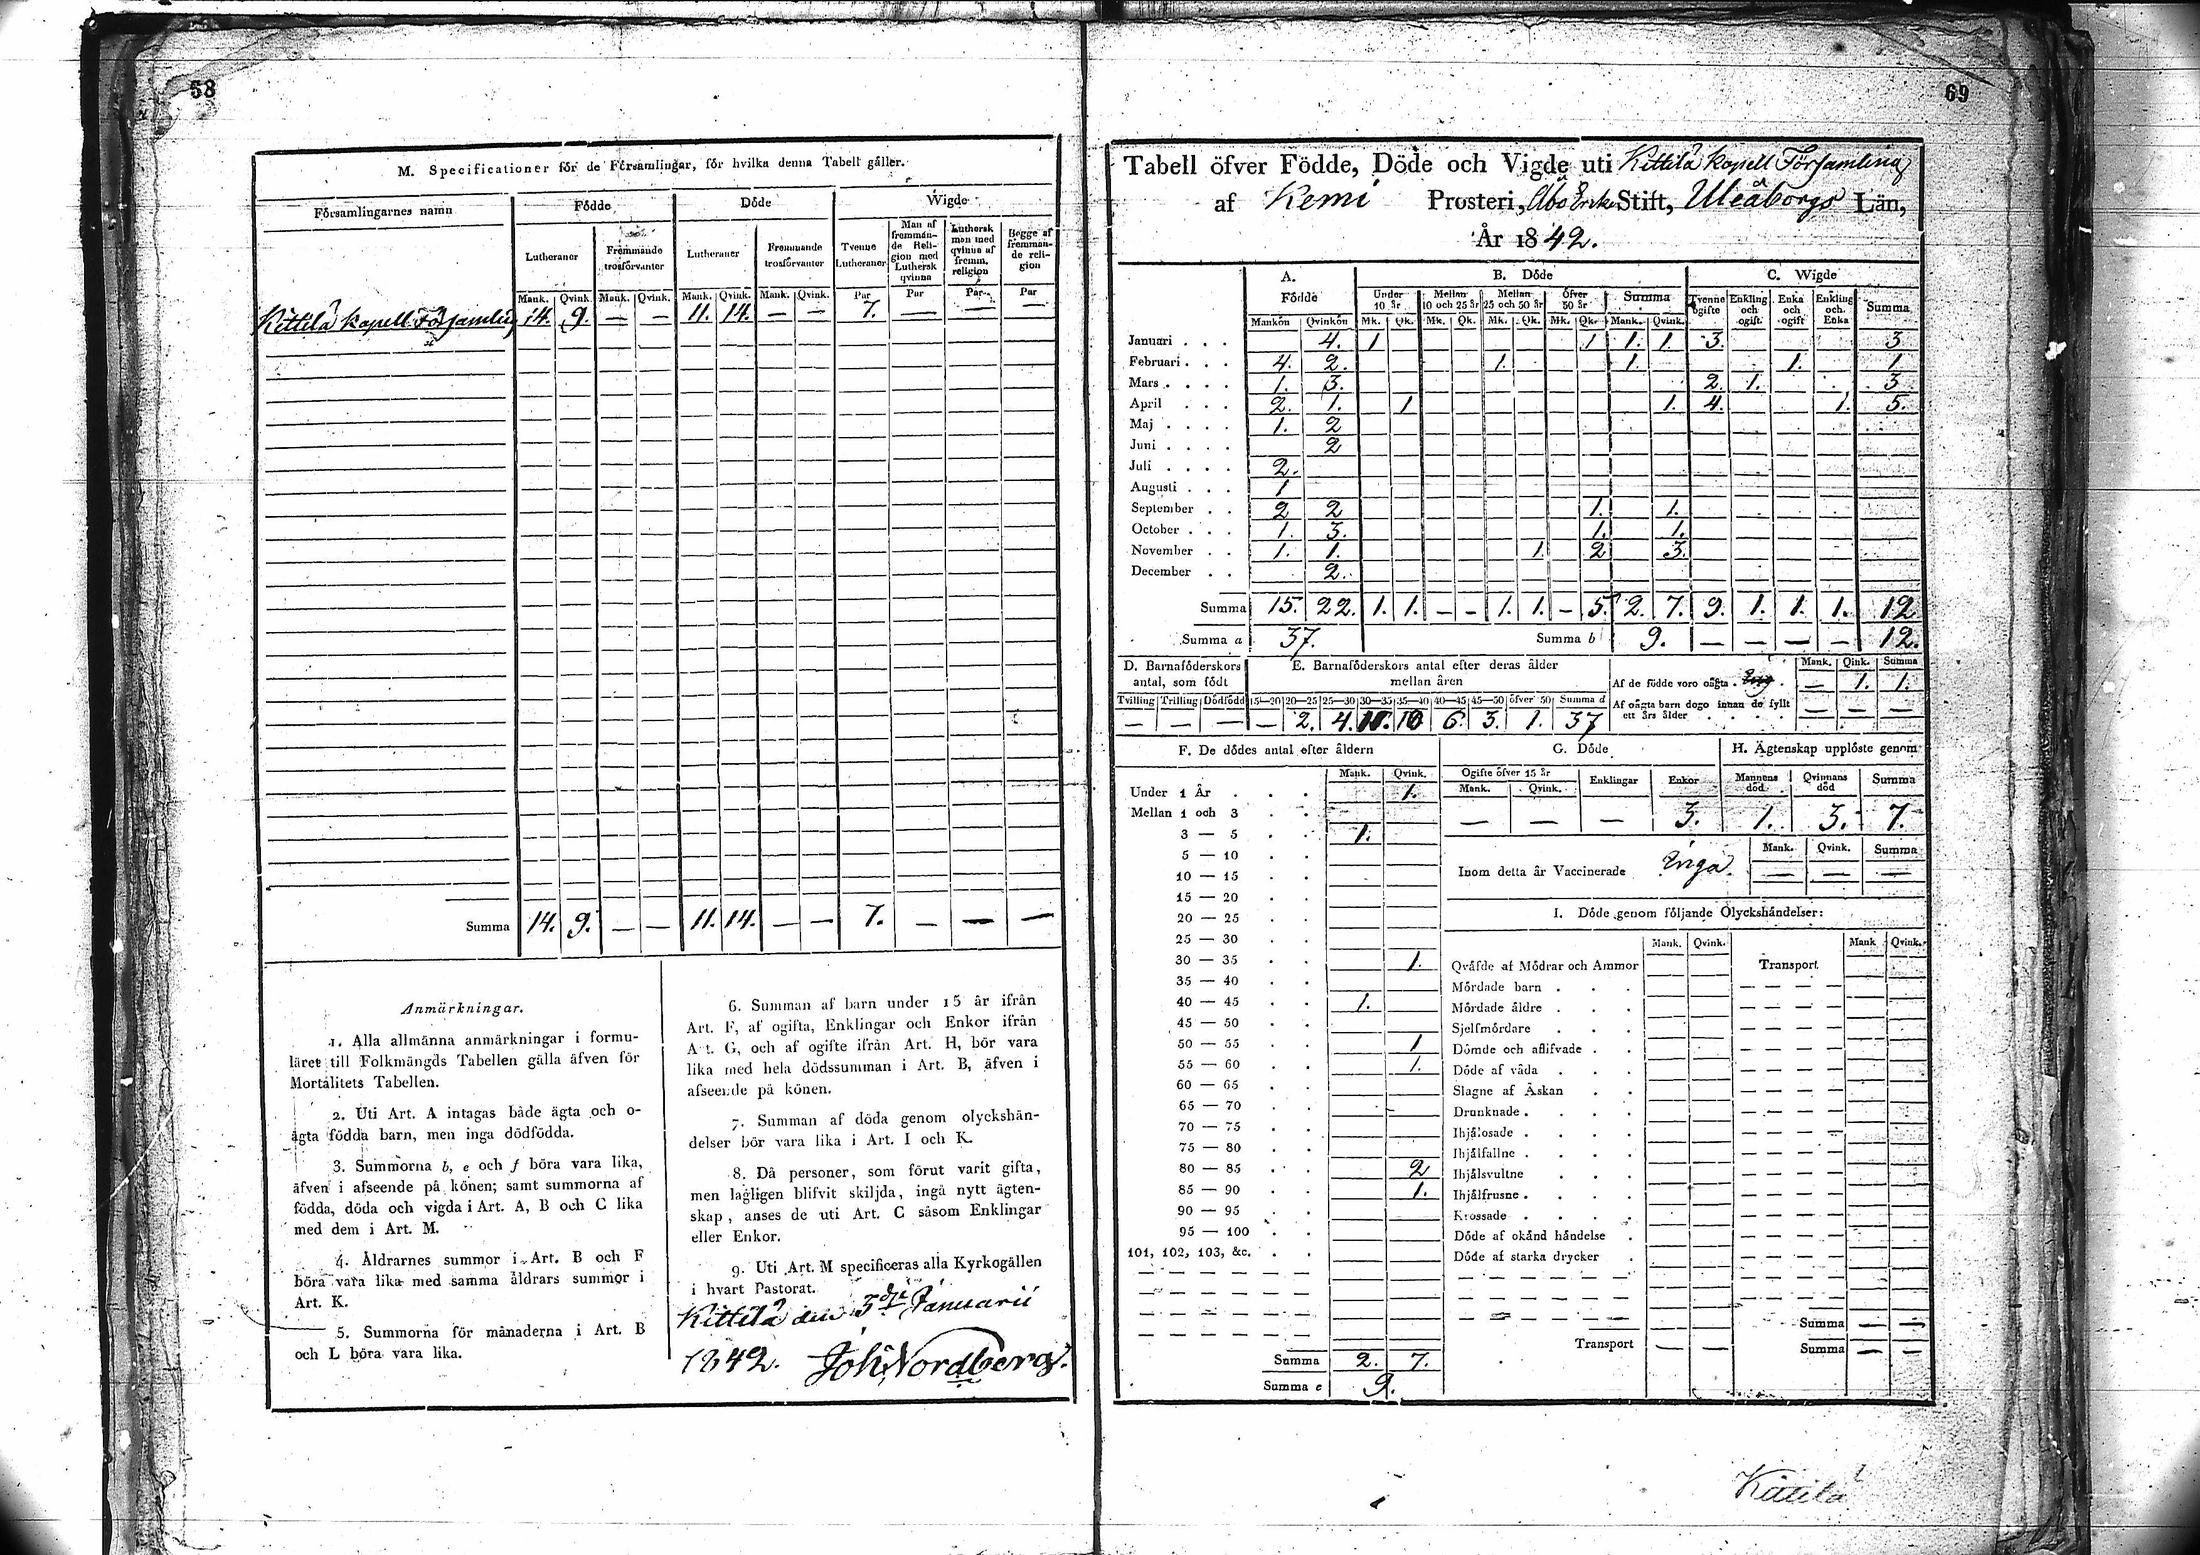 58
M. Specificationer för de Församlingar, för hvilka denna Tabell gäller.
Församlingarnes namn Födde Döde Wigde
Lutheraner Frémmande trosförvanter Lutheraner Fremmande trosförvanter Tvenne Lutheraner Man af främmande Religion med Luthersk qvinna Luthersk man med qvinna af fremm. religion Begge af fremmande religion
Mank. Qvink. Mank. Qvink. Mank. Qvink. Mank. Qvink. Par Par Par Par
Kittilä kapell Församling 14. 9. — — 11. 14. — — 7. — — —
Summa 14. 9. — — 11. 14. — — 7. — — —
Anmärkningar.
1. Alla allmänna anmärkningar i formu-
läret till Folkmängds Tabellen gälla äfven för
Mortalitets Tabellen.
2. Uti Art. A intagas både ägta och o-
ägta födda barn, men inga dödfödda.
3. Summorna b, e och f böra vara lika,
äfven i afseende på könen; samt summorna af
födda, döda och vigda i Art. A, B och C lika
med dem i Art. M.
4. Åldrarnes summor i Art. B och F
böra vara lika med samma åldrars summor i
Art. K.
5. Summorna för månaderna i Art. B
och L böra vara lika.
6. Summan af barn under 15 år ifrån
Art. F, af ogifta, Enklingar och Enkor ifrån
Art. G, och af ogifte ifrån Art. H, bör vara
lika med hela dödssumman i Art. B, äfven i
afseende på könen.
7. Summan af döda genom olyckshän-
delser bör vara lika i Art. I och K.
8. Då personer, som förut varit gifta,
men lagligen blifvit skiljda, ingå nytt ägten-
skap, anses de uti Art. C såsom Enklingar
eller Enkor.
9. Uti Art. M specificeras alla Kyrkogällen
i hvart Pastorat.
Kittilä den 3dje Januarii
1842. Joh. Nordberg.
69
Tabell öfver Födde, Döde och Vigde uti Kittilä kapell Församling
af Kemi Prosteri, Åbo Erke Stift, Uleåborgs Län,
År 1842.
A. Födde B. Döde C. Wigde
Under 10 år Mellan 10 och 25 år Mellan 25 och 50 år Öfver 50 år Summa Tvenne ogifte Enkling och ogift. Enka och ogift Enkling och Enka Summa
Mankön Qvinkön Mk. Qk. Mk. Qk. Mk. Qk. Mk. Qk. Mank. Qvink.
Januari . . . 4. 1 1 1. 1. 3. 3
Februari . . . 4. 2. 1. 1. 1. 1
Mars . . . . 1. 3. 2. 1. 3
April . . . 2. 1. 1 1. 4. 1. 5.
Maj . . . . 1. 2
Juni . . . . 2
Juli . . . . 2.
Augusti . . . 1
September . . 2 2 1. 1.
October . . . 1. 3. 1. 1.
November . . 1. 1. 1. 2 3.
December . . 2.
Summa 15. 22. 1. 1. — — 1. 1. — 5. 2. 7. 9. 1. 1. 1. 12
Summa a 37. Summa b 9. — — — — 12.
D. Barnaföderskors antal, som födt
Tvilling Trilling Dödfödd
— — —
E. Barnaföderskors antal efter deras ålder mellan åren
15—20 20—25 25—30 30—35 35—40 40—45 45—50 öfver 50 Summa d
— 2. 4. 11. 10 6. 3. 1. 37
Mank. Qink. Summa
Af de födde voro oägta . — 1. 1.
Af oägta barn dogo innan de fyllt ett års ålder . . . — — —
F. De dödes antal efter åldern
Mank. Qvink.
Under 1 År . . . 1.
Mellan 1 och 3 . .
3 — 5 . . 1.
5 — 10 . .
10 — 15 . .
15 — 20 . .
20 — 25 . .
25 — 30 . .
30 — 35 . . 1.
35 — 40 . .
40 — 45 . . 1.
45 — 50 . .
50 — 55 . . 1
55 — 60 . . 1.
60 — 65 . .
65 — 70 . .
70 — 75 . .
75 — 80 . .
80 — 85 . . 2
85 — 90 . . 1.
90 — 95 . .
95 — 100 . .
101, 102, 103, &c. . .
Summa 2. 7.
Summa e 9.
G. Döde
Ogifte öfver 15 år Enklingar Enkor
Mank. Qvink.
— — — 3.
H. Ägtenskap upplöste genom
Mannens död Qvinnans död Summa
1. 3. 7.
Mank. Qvink. Summa
Inom detta år Vaccinerade Inga. — — —
I. Döde genom följande Olyckshändelser:
Mank. Qvink. Mank Qvink.
Qväfde af Mödrar och Ammor Transport
Mördade barn . . .
Mördade äldre . . .
Sjelfmördare . . .
Dömde och aflifvade . .
Döde af våda . . .
Slagne af Åskan . .
Drunknade . . . .
Ihjälosade . . . .
Ihjälfallne . . . .
Ihjälsvultne . . .
Ihjälfrusne . . . .
Krossade . . . .
Döde af okänd händelse .
Döde af starka drycker .
Summa — —
Transport — — Summa — —
Kittilä